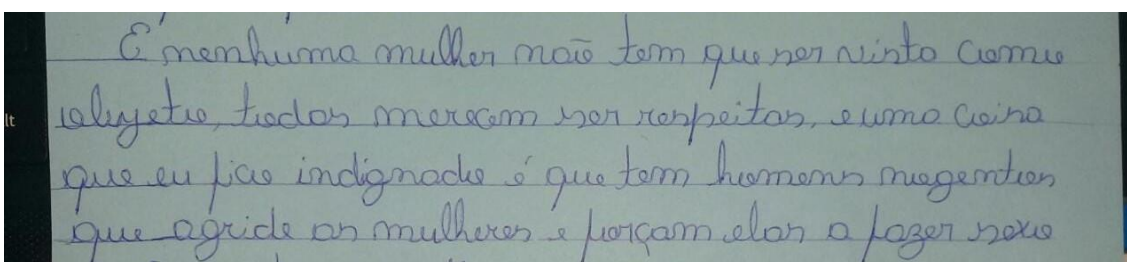 E nenhuma mulher não tem que ser visto como
objeto, todas merecem ser respeitas, e uma coisa
que eu fico indignado é que tem homens nogentos
que agride as mulheres e forçam elas a fazer sexo